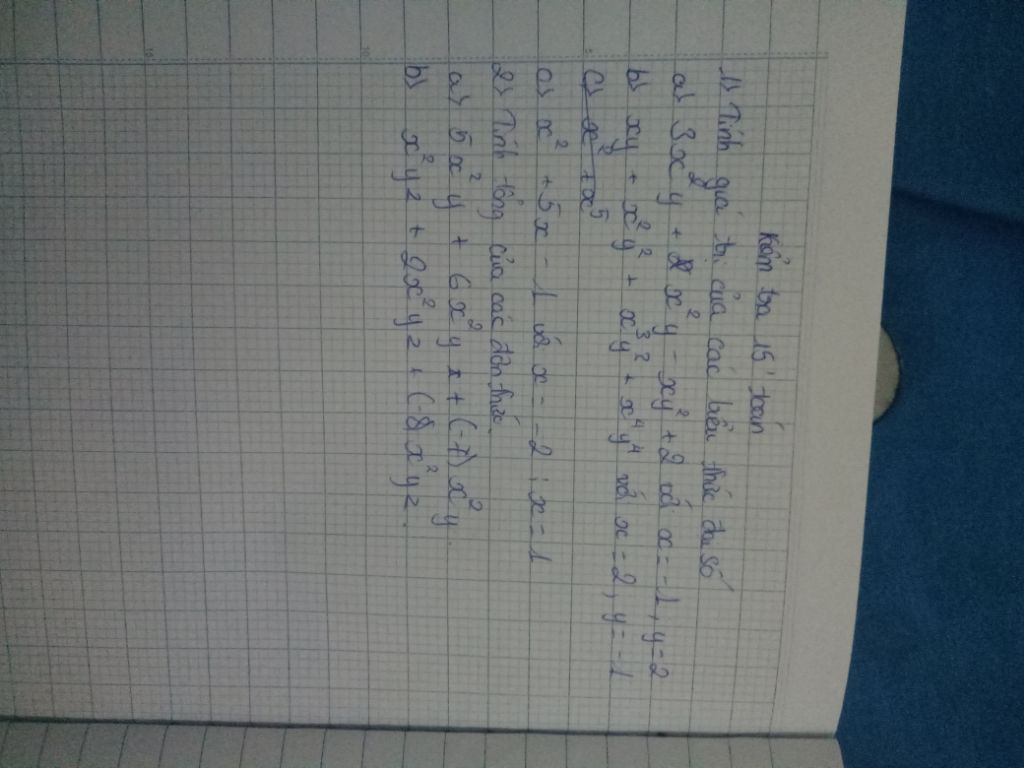 Kiểm tra 15' toán
1) Tính giá trị của các biểu thức đại số
a) 3x²y + 2x²y - xy² + 2 với x = -1, y = 2
b) xy + x²y² + x³y² + x⁴y⁴ với x = 2, y = -1
c) x² + x⁵
c) x² + 5x - 1 với x = -2 ; x = 1
2) Tính tổng của các đơn thức.
a) 5x²y + 6x²y x + (-7)x²y.
b) x²yz + 2x²yz + (-8x²yz.